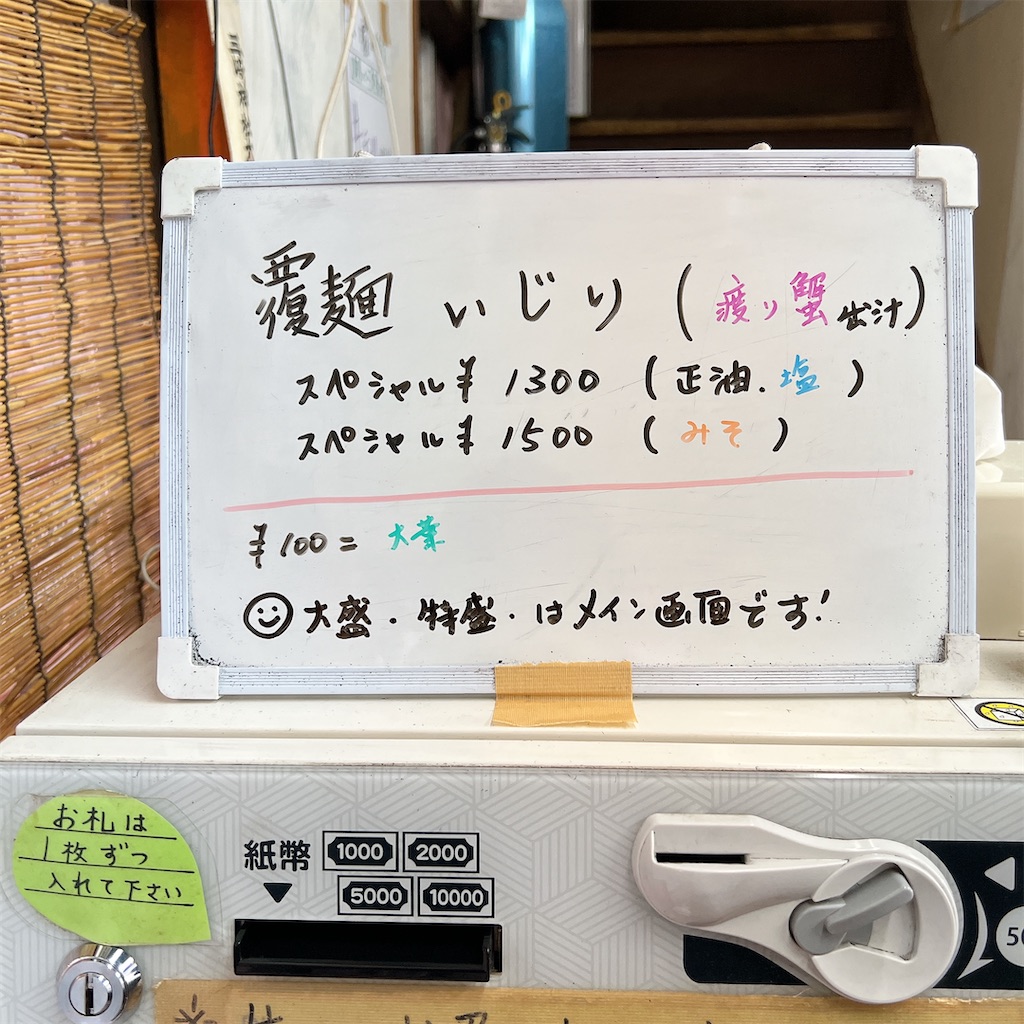 覆麺 いじり (渡り蟹出汁)
スペシャル¥ 1300 (正油.塩)
スペシャル¥ 1500 (みそ)
¥100= 大葉
大盛・特盛・はメイン画面です!
お札は
1枚ずつ
入れて下さい
紙幣 1000 2000
5000 10000